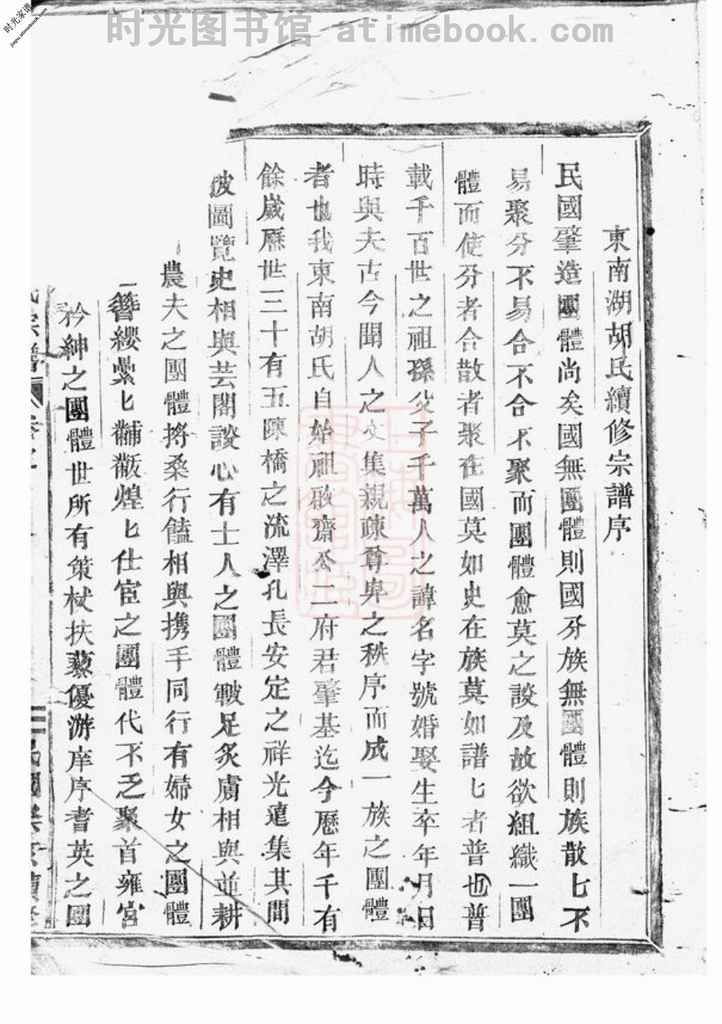 时光图书馆 atimebook.com
时光家谱
東南湖胡氏續修宗譜序
民國肇造團體尚矣國無團體則國分族無團體則族散匕不
易聚分不易合不合不聚而團體愈莫之談及故欲組織一團
體而使分者合散者聚在國莫如史在族莫如譜匕者普也普
載千百世之祖孫父子千萬人之諱名字號婚娶生卒年月日
時與夫古今聞人之文集親疎尊卑之秩序而成一族之團體
者也我東南胡氏自始祖啟齋公二府君肇基迄今歷年千有
餘歲歷世三十有五陳橋之流澤孔長安定之祥光遠集其間
披圖覽史相與芸閣談心有士人之團體皸足炙膚相與並耕
農夫之團體捋桑行饁相與携手同行有婦女之團體
簪纓纍匕黼黻煌匕仕宦之團體代不乏聚首雍宮
衿紳之團體世所有策杖扶藜優游庠序耆英之團